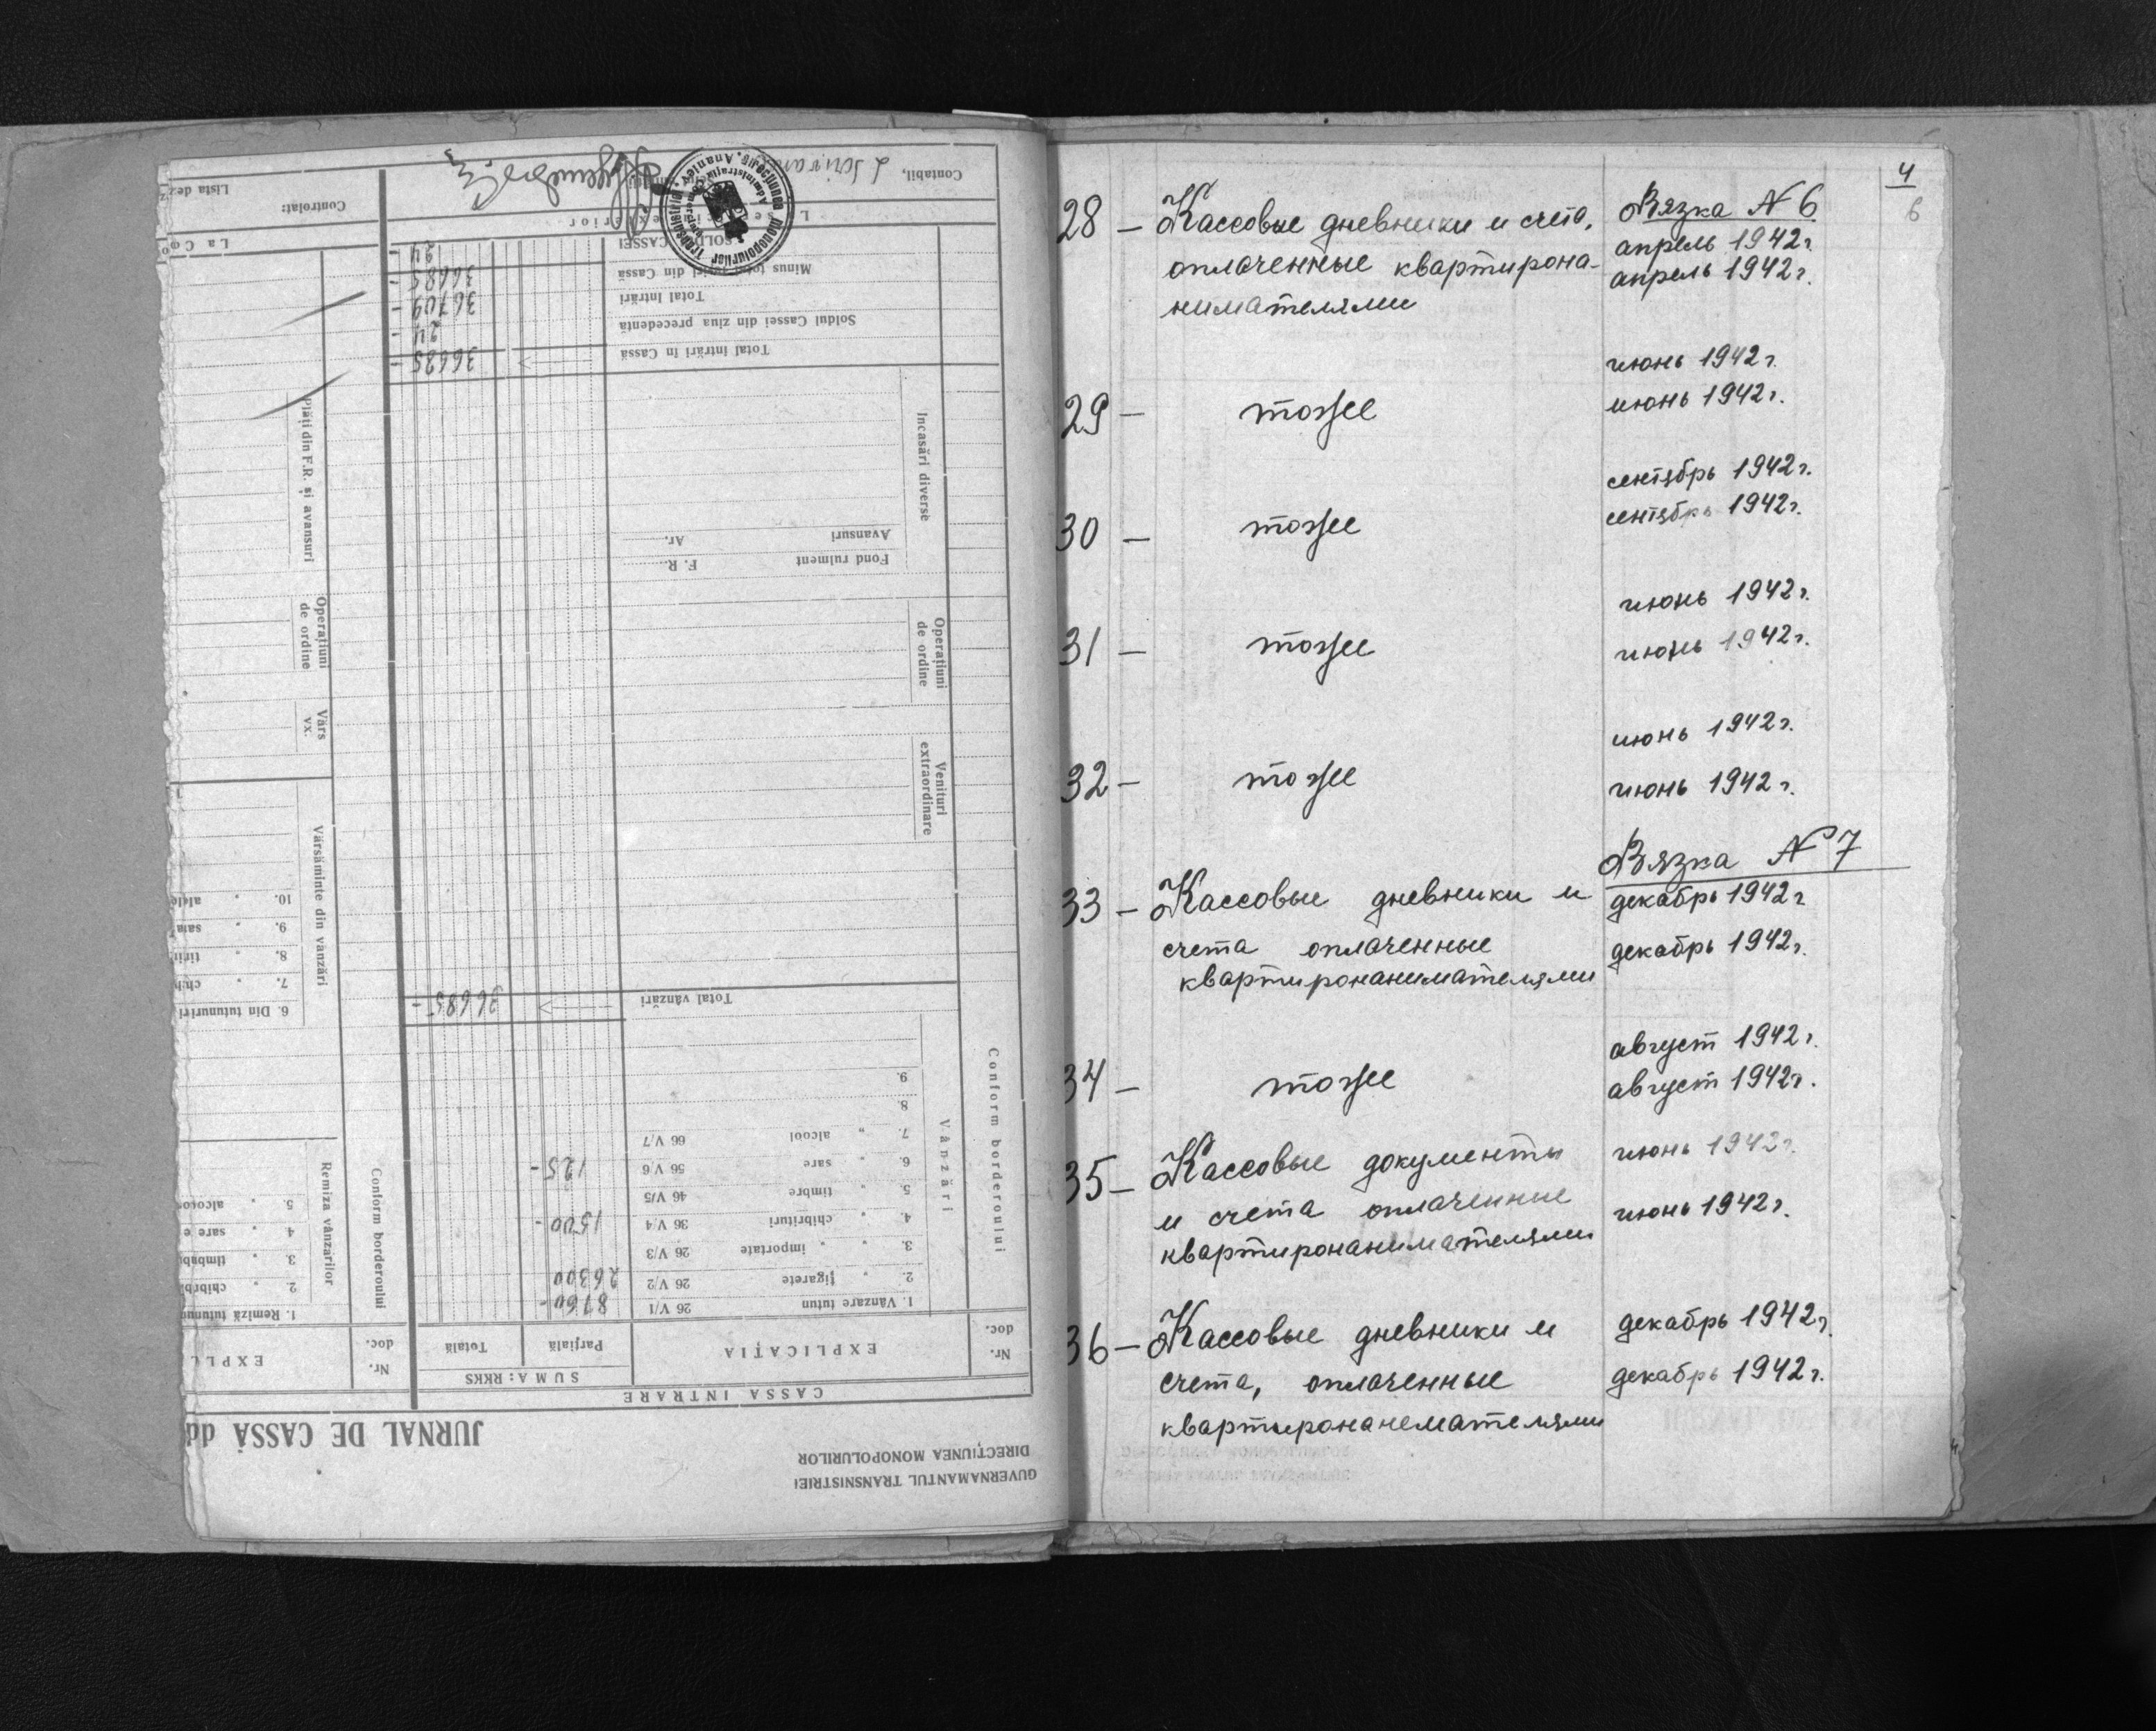 GUVERNAMANTUL TRANSNISTRIEI
DIRECȚIUNEA MONOPOLURILOR
JURNAL DE CASSĂ
CASSA INTRARE
Nr. doc.
EXPLICAȚIA
SUMA: RKKS
Parțială
Totală
Conform borderoului
Vânzări
1. Vânzare tutun 26 V/1 8760-
2. " țigarete 26 V/2 26300
3. " " importate 26 V/3
4. " chibrituri 36 V/4 1500-
5. " timbre 46 V/5
6. " sare 56 V/6 125-
7. " alcool 66 V/7
8.
9.
Total vânzări 36685-
Venituri extraordinare
Operațiuni de ordine
Incasări diverse
Fond rulment F. R.
Avansuri Av.
Total intrări în Cassă 36685-
Soldul Cassei din ziua precedentă 24-
Total Intrări 36709-
Minus total din Cassă 36685-
SOLDUL CASSEI 24-
Contabil,
Nr. doc.
Conform borderoului
Remiza vânzarilor
1. Remiză
2. "
3. "
4. " sare
5. "
Vărsăminte din vânzări
6. Din
7. "
8. "
9. "
10. "
Vărs vx.
Operațiuni de ordine
Plăți din F.R. și avansuri
Controlat:
Lista de
4
6
Вязка N 6
28 – Кассовые дневники и счета, апрель 1942 г.
оплаченные квартирона- апрель 1942 г.
нимателями
июнь 1942 г.
29 – тоже июнь 1942 г.
сентябрь 1942 г.
30 – тоже сентябрь 1942 г.
июнь 1942 г.
31 – тоже июнь 1942 г.
июнь 1942 г.
32 – тоже июнь 1942 г.
Вязка N 7
33 – Кассовые дневники и декабрь 1942 г
счета оплаченные декабрь 1942 г.
квартиронанимателями
август 1942 г.
34 – тоже август 1942 г.
35 – Кассовые документы июнь 1942 г.
и счета оплаченные июнь 1942 г.
квартиронанимателями
36 – Кассовые дневники и декабрь 1942 г.
счета, оплаченные декабрь 1942 г.
квартиронанемателями